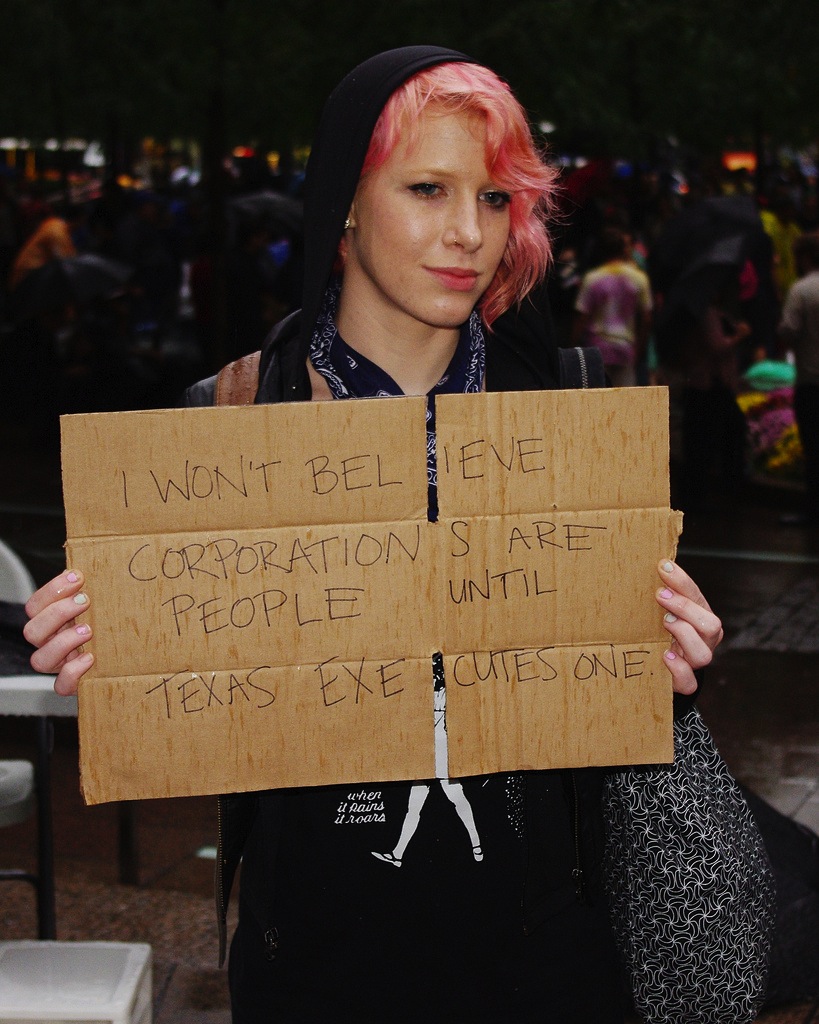 I WON'T BELIEVE
CORPORATIONS ARE
PEOPLE UNTIL
TEXAS EXECUTES ONE.
when
it pains
it roars